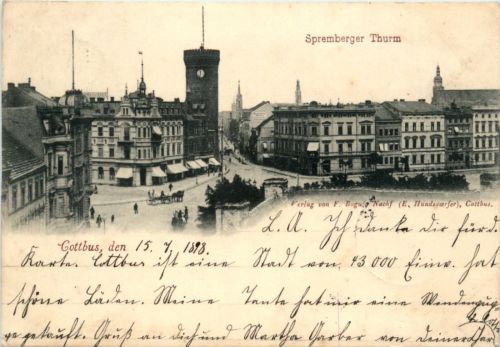 Spremberger Thurm
Verlag von F. Nachf (E. Hundsoerfer), Cottbus.
Cottbus, den 15. 7. 1898.
L. A. Ich danke dir für d.
Karte. Cottbus ist eine Stadt von 43 000 Einw. hat
schöne Läden. Meine Tante hat mir eine
ge gekauft. Gruß an dich und Martha Garber von deiner